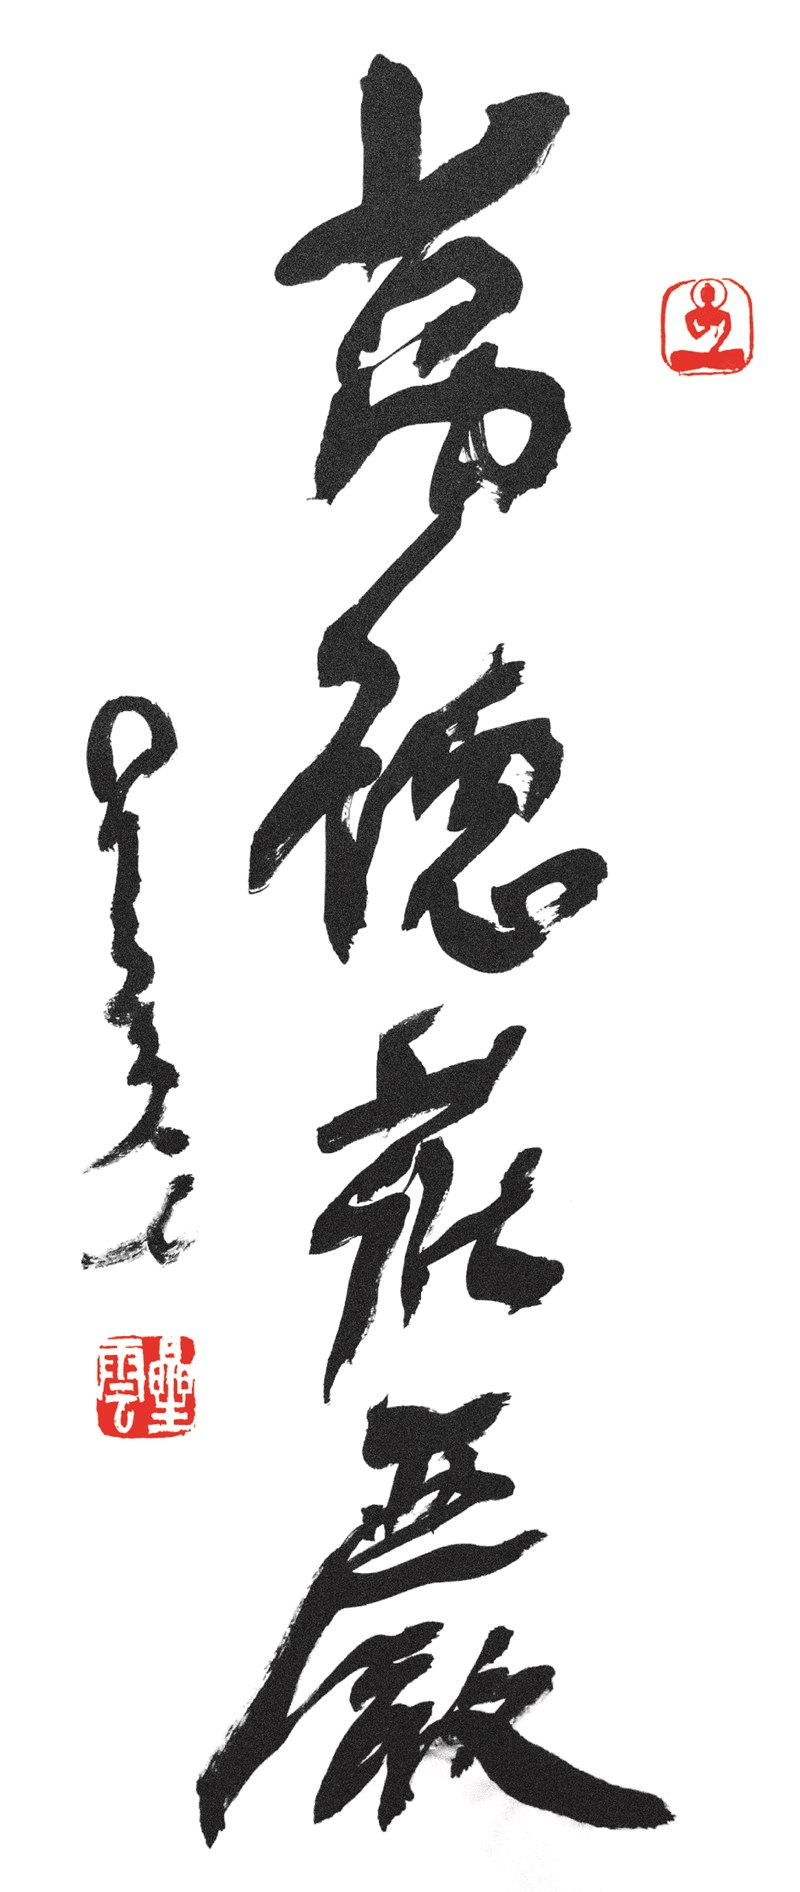 萬德莊嚴
星雲
星雲